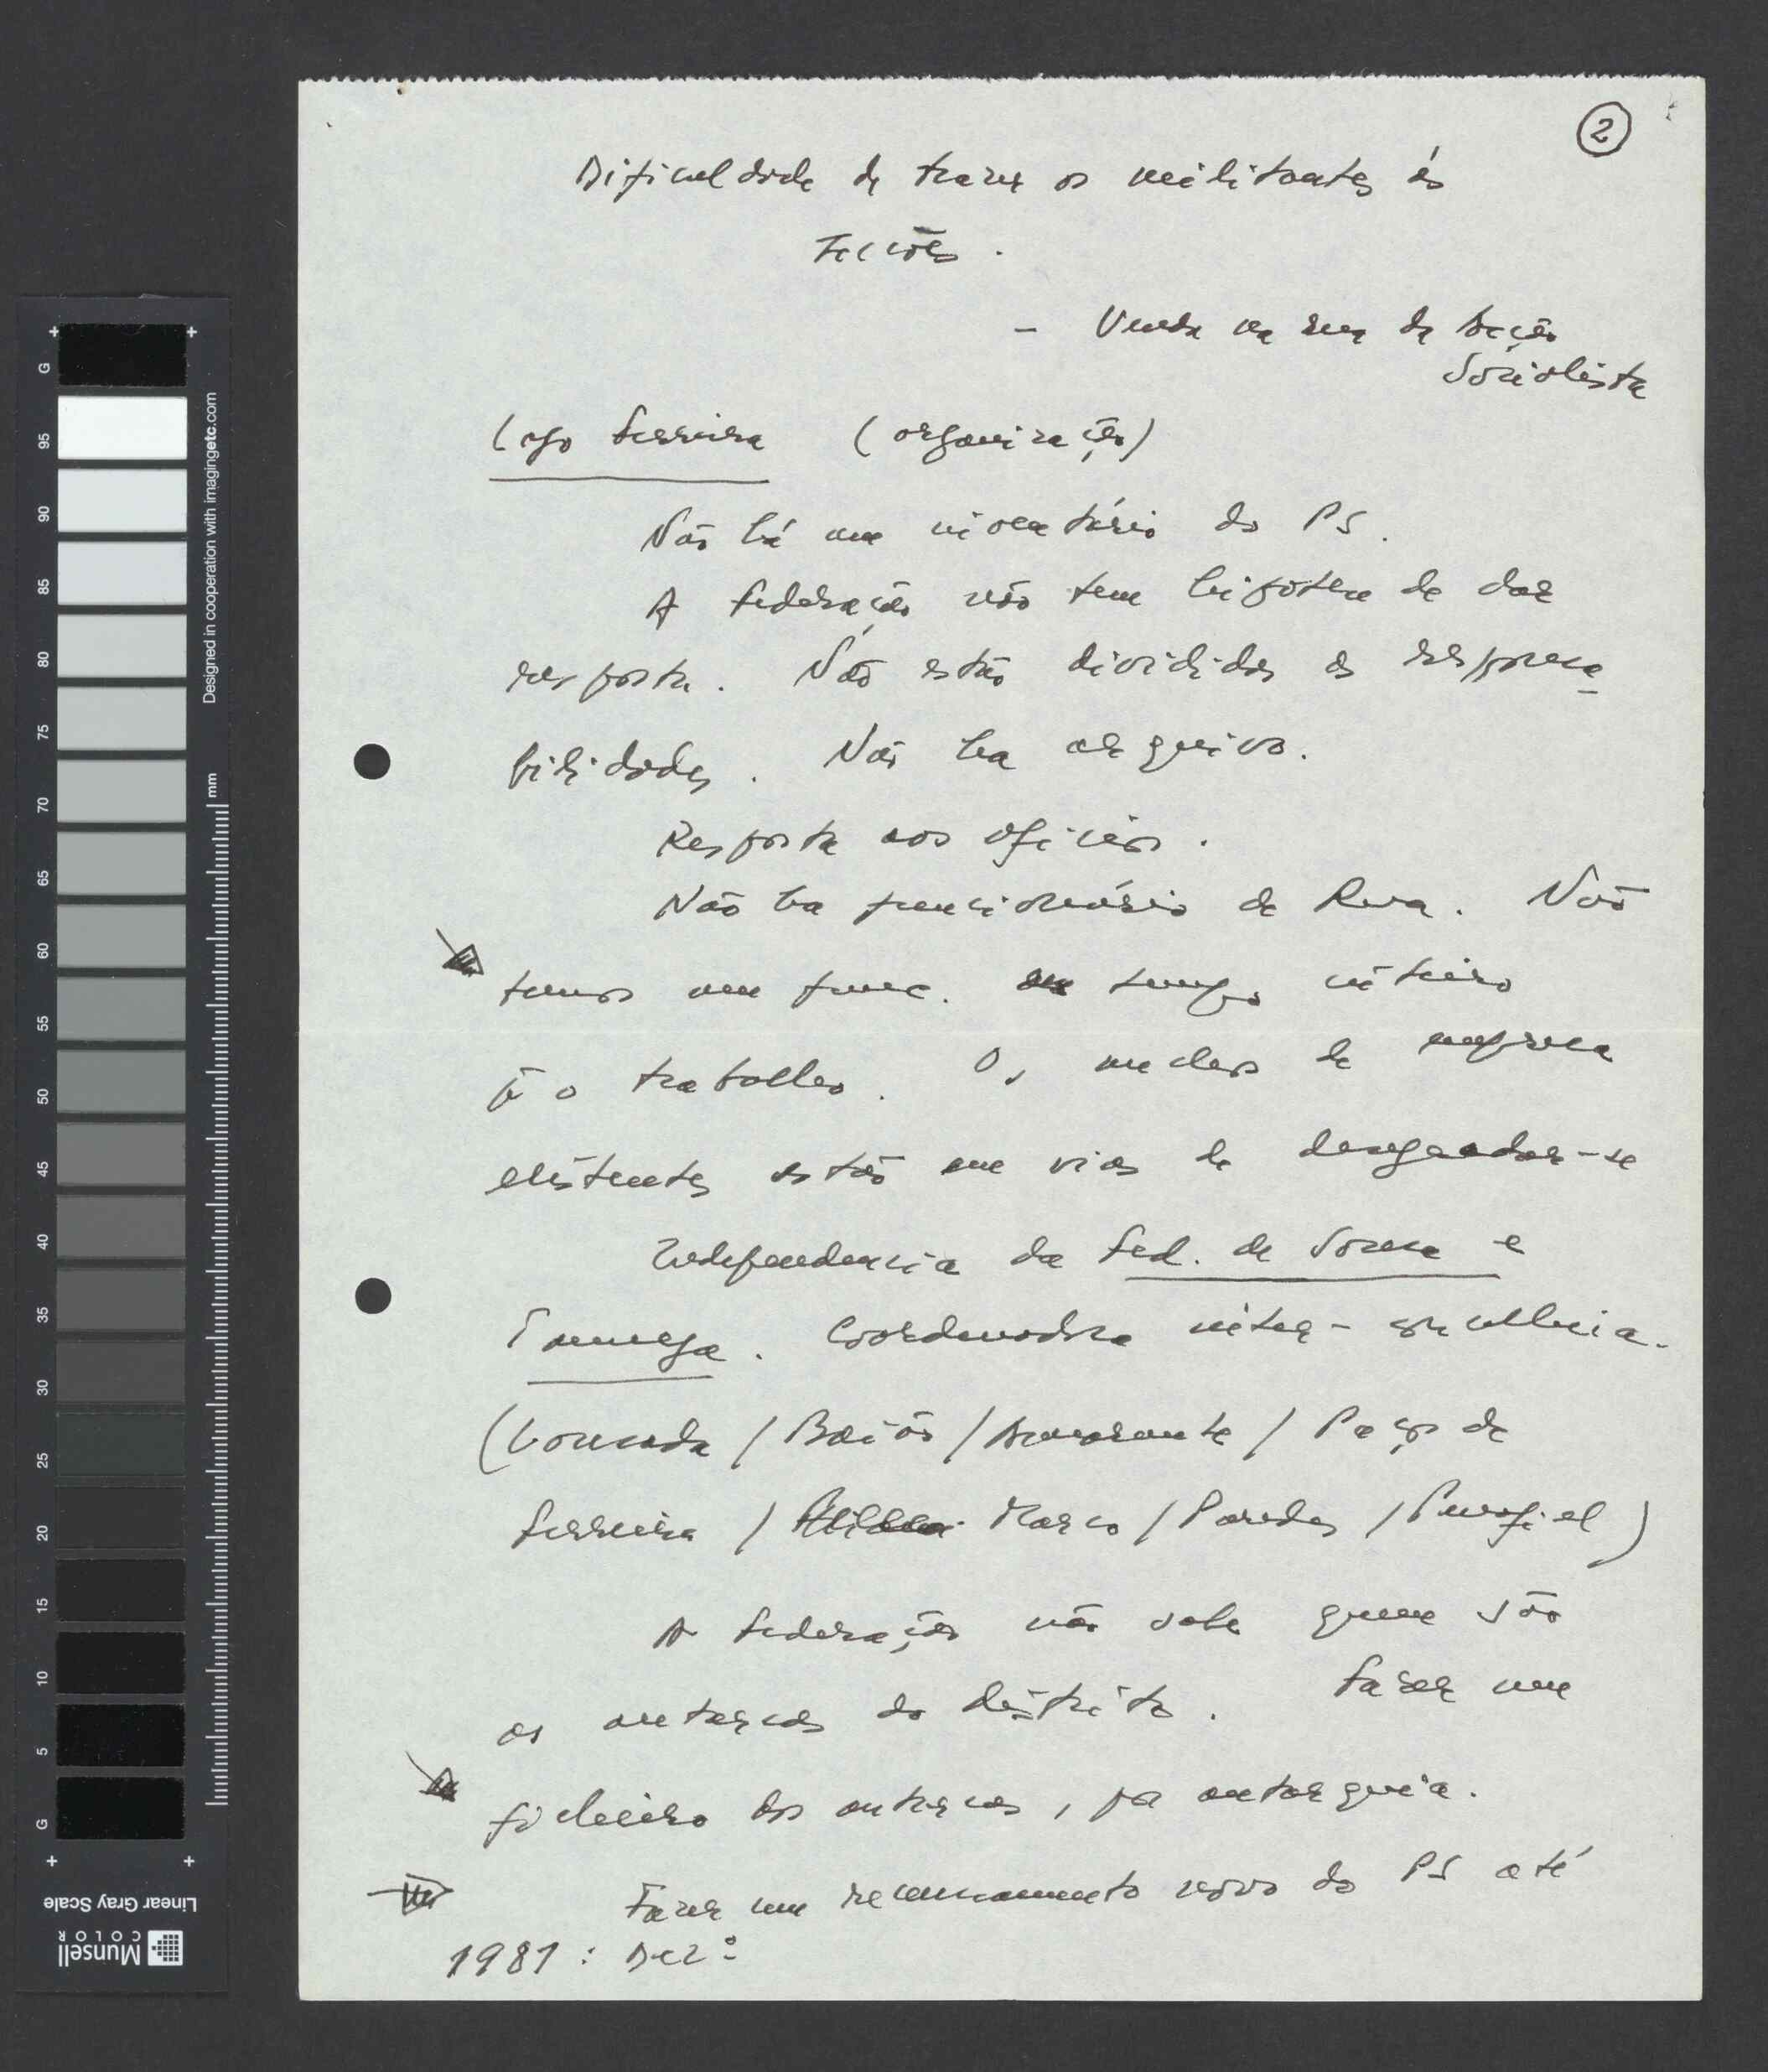 2
Dificuldade de trazer os militantes às
Secções.
- Venda na rua da Acção
Socialista
Lago Ferreira (organização)
Não há um inventário do PS.
A Federação não tem hipótese de dar
resposta. Não estão divididas as responsa
bilidades. Não ha arquivo.
Resposta aos ofícios.
Não ha funcionário de Rua. Não
temos um func. tempo inteiro
p.ª o trabalho. Os nucleos de empresa
existentes estão em vias de desagradar-se
Independencia da Fed. de Sousa e
Tamega. Coordenadora inter-concelhia.
(Lousada / Baião / Amarante / Paços de
Ferreira / Marco / Paredes / Penafiel)
A Federação não sabe quem são
os autarcas do distrito. Fazer um
ficheiro dos autarcas, por autarquia.
Fazer um recenseamento novo do PS até
1981: Dezº
Designed in cooperation with imagingetc.com
mm
G 95 90 85 80 75 70 65 60 55 50 45 40 35 30 25 20 15 10 5 G
Linear Gray Scale
Munsell
COLOR